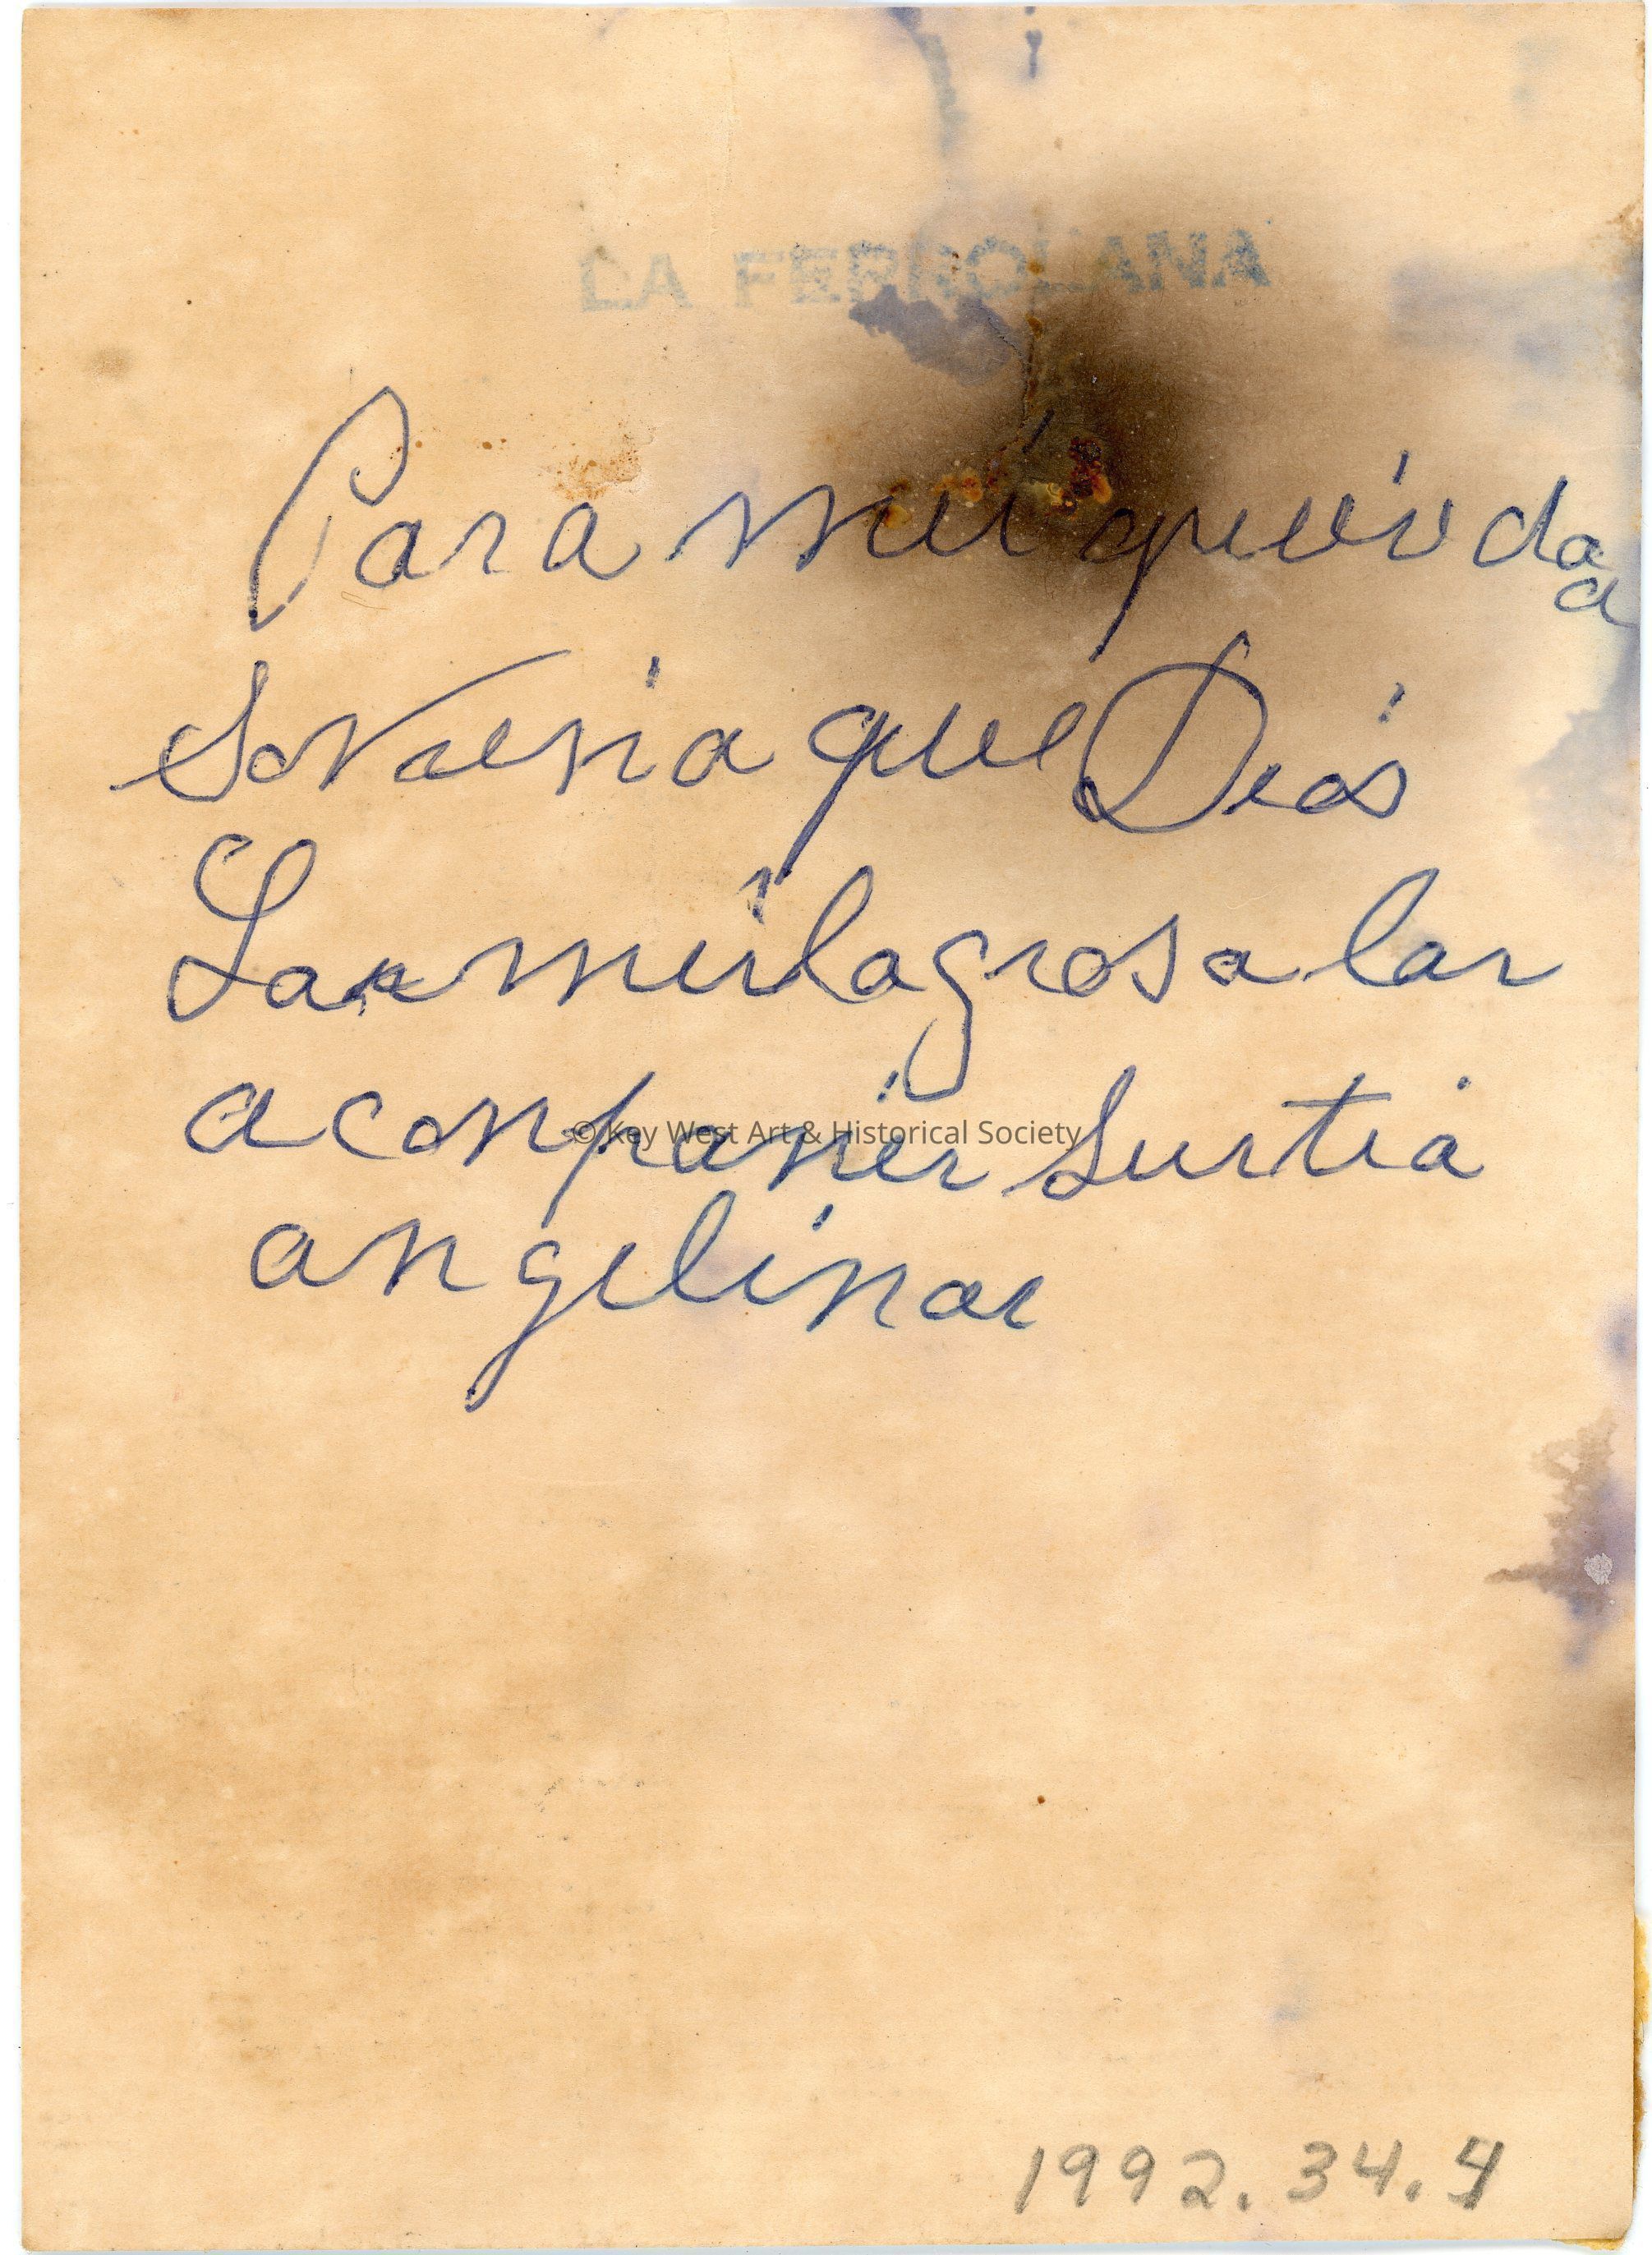 LA FERROLANA
Para mi queirda
a
Sovrenia que Dios
La milagrosa lar
aconpanier Surtia
angelinar
© Key West Art & Historical Society
1992.34.4